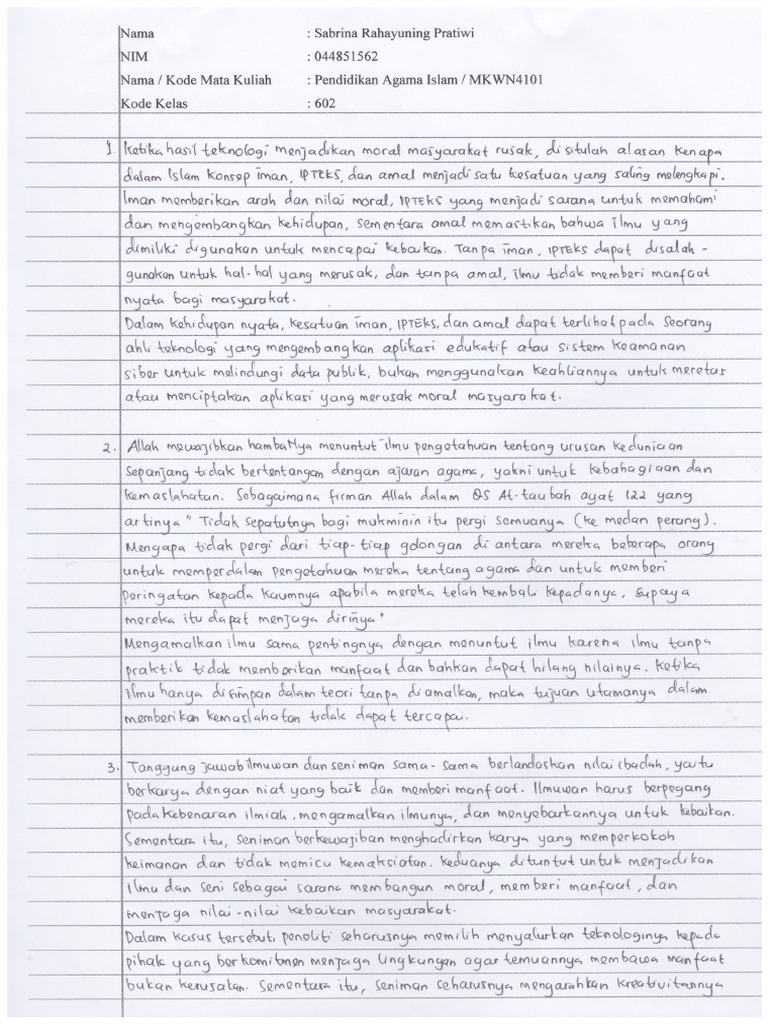 Nama : Sabrina Rahayuning Pratiwi
NIM : 044851562
Nama / Kode Mata Kuliah : Pendidikan Agama Islam / MKWN4101
Kode Kelas : 602
1. Ketika hasil teknologi menjadikan moral masyarakat rusak, disitulah alasan kenapa
dalam Islam konsep iman, IPTEKS, dan amal menjadi satu kesatuan yang saling melengkapi.
Iman memberikan arah dan nilai moral, IPTEKS yang menjadi sarana untuk memahami
dan mengembangkan kehidupan, sementara amal memastikan bahwa ilmu yang
dimiliki digunakan untuk mencapai kebaikan. Tanpa iman, IPTEKS dapat disalah-
gunakan untuk hal-hal yang merusak, dan tanpa amal, ilmu tidak memberi manfaat
nyata bagi masyarakat.
Dalam kehidupan nyata, kesatuan iman, IPTEKS, dan amal dapat terlihat pada seorang
ahli teknologi yang mengembangkan aplikasi edukatif atau sistem keamanan
siber untuk melindungi data publik, bukan menggunakan keahliannya untuk meretas
atau menciptakan aplikasi yang merusak moral masyarakat.
2. Allah mewajibkan hambaNya menuntut ilmu pengetahuan tentang urusan keduniaan
sepanjang tidak bertentangan dengan ajaran agama, yakni untuk kebahagiaan dan
kemaslahatan. Sebagaimana firman Allah dalam QS At-taubah ayat 122 yang
artinya " Tidak sepatutnya bagi mukminin itu pergi semuanya (ke medan perang).
Mengapa tidak pergi dari tiap-tiap golongan di antara mereka beberapa orang
untuk memperdalam pengetahuan mereka tentang agama dan untuk memberi
peringatan kepada kaumnya apabila mereka telah kembali kepadanya, supaya
mereka itu dapat menjaga dirinya"
Mengamalkan ilmu sama pentingnya dengan menuntut ilmu karena ilmu tanpa
praktik tidak memberikan manfaat dan bahkan dapat hilang nilainya. Ketika
ilmu hanya disimpan dalam teori tanpa diamalkan, maka tujuan utamanya dalam
memberikan kemaslahatan tidak dapat tercapai.
3. Tanggung jawab ilmuwan dan seniman sama-sama berlandaskan nilai ibadah, yaitu
berkarya dengan niat yang baik dan memberi manfaat. Ilmuwan harus berpegang
pada kebenaran ilmiah, mengamalkan ilmunya, dan menyebarkannya untuk kebaikan.
Sementara itu, seniman berkewajiban menghadirkan karya yang memperkokoh
keimanan dan tidak memicu kemaksiatan. Keduanya dituntut untuk menjadikan
ilmu dan seni sebagai sarana membangun moral, memberi manfaat, dan
menjaga nilai-nilai kebaikan masyarakat.
Dalam kasus tersebut, peneliti seharusnya memilih menyalurkan teknologinya kepada
pihak yang berkomitmen menjaga lingkungan agar temuannya membawa manfaat
bukan kerusakan. Sementara itu, seniman seharusnya mengarahkan kreativitasnya